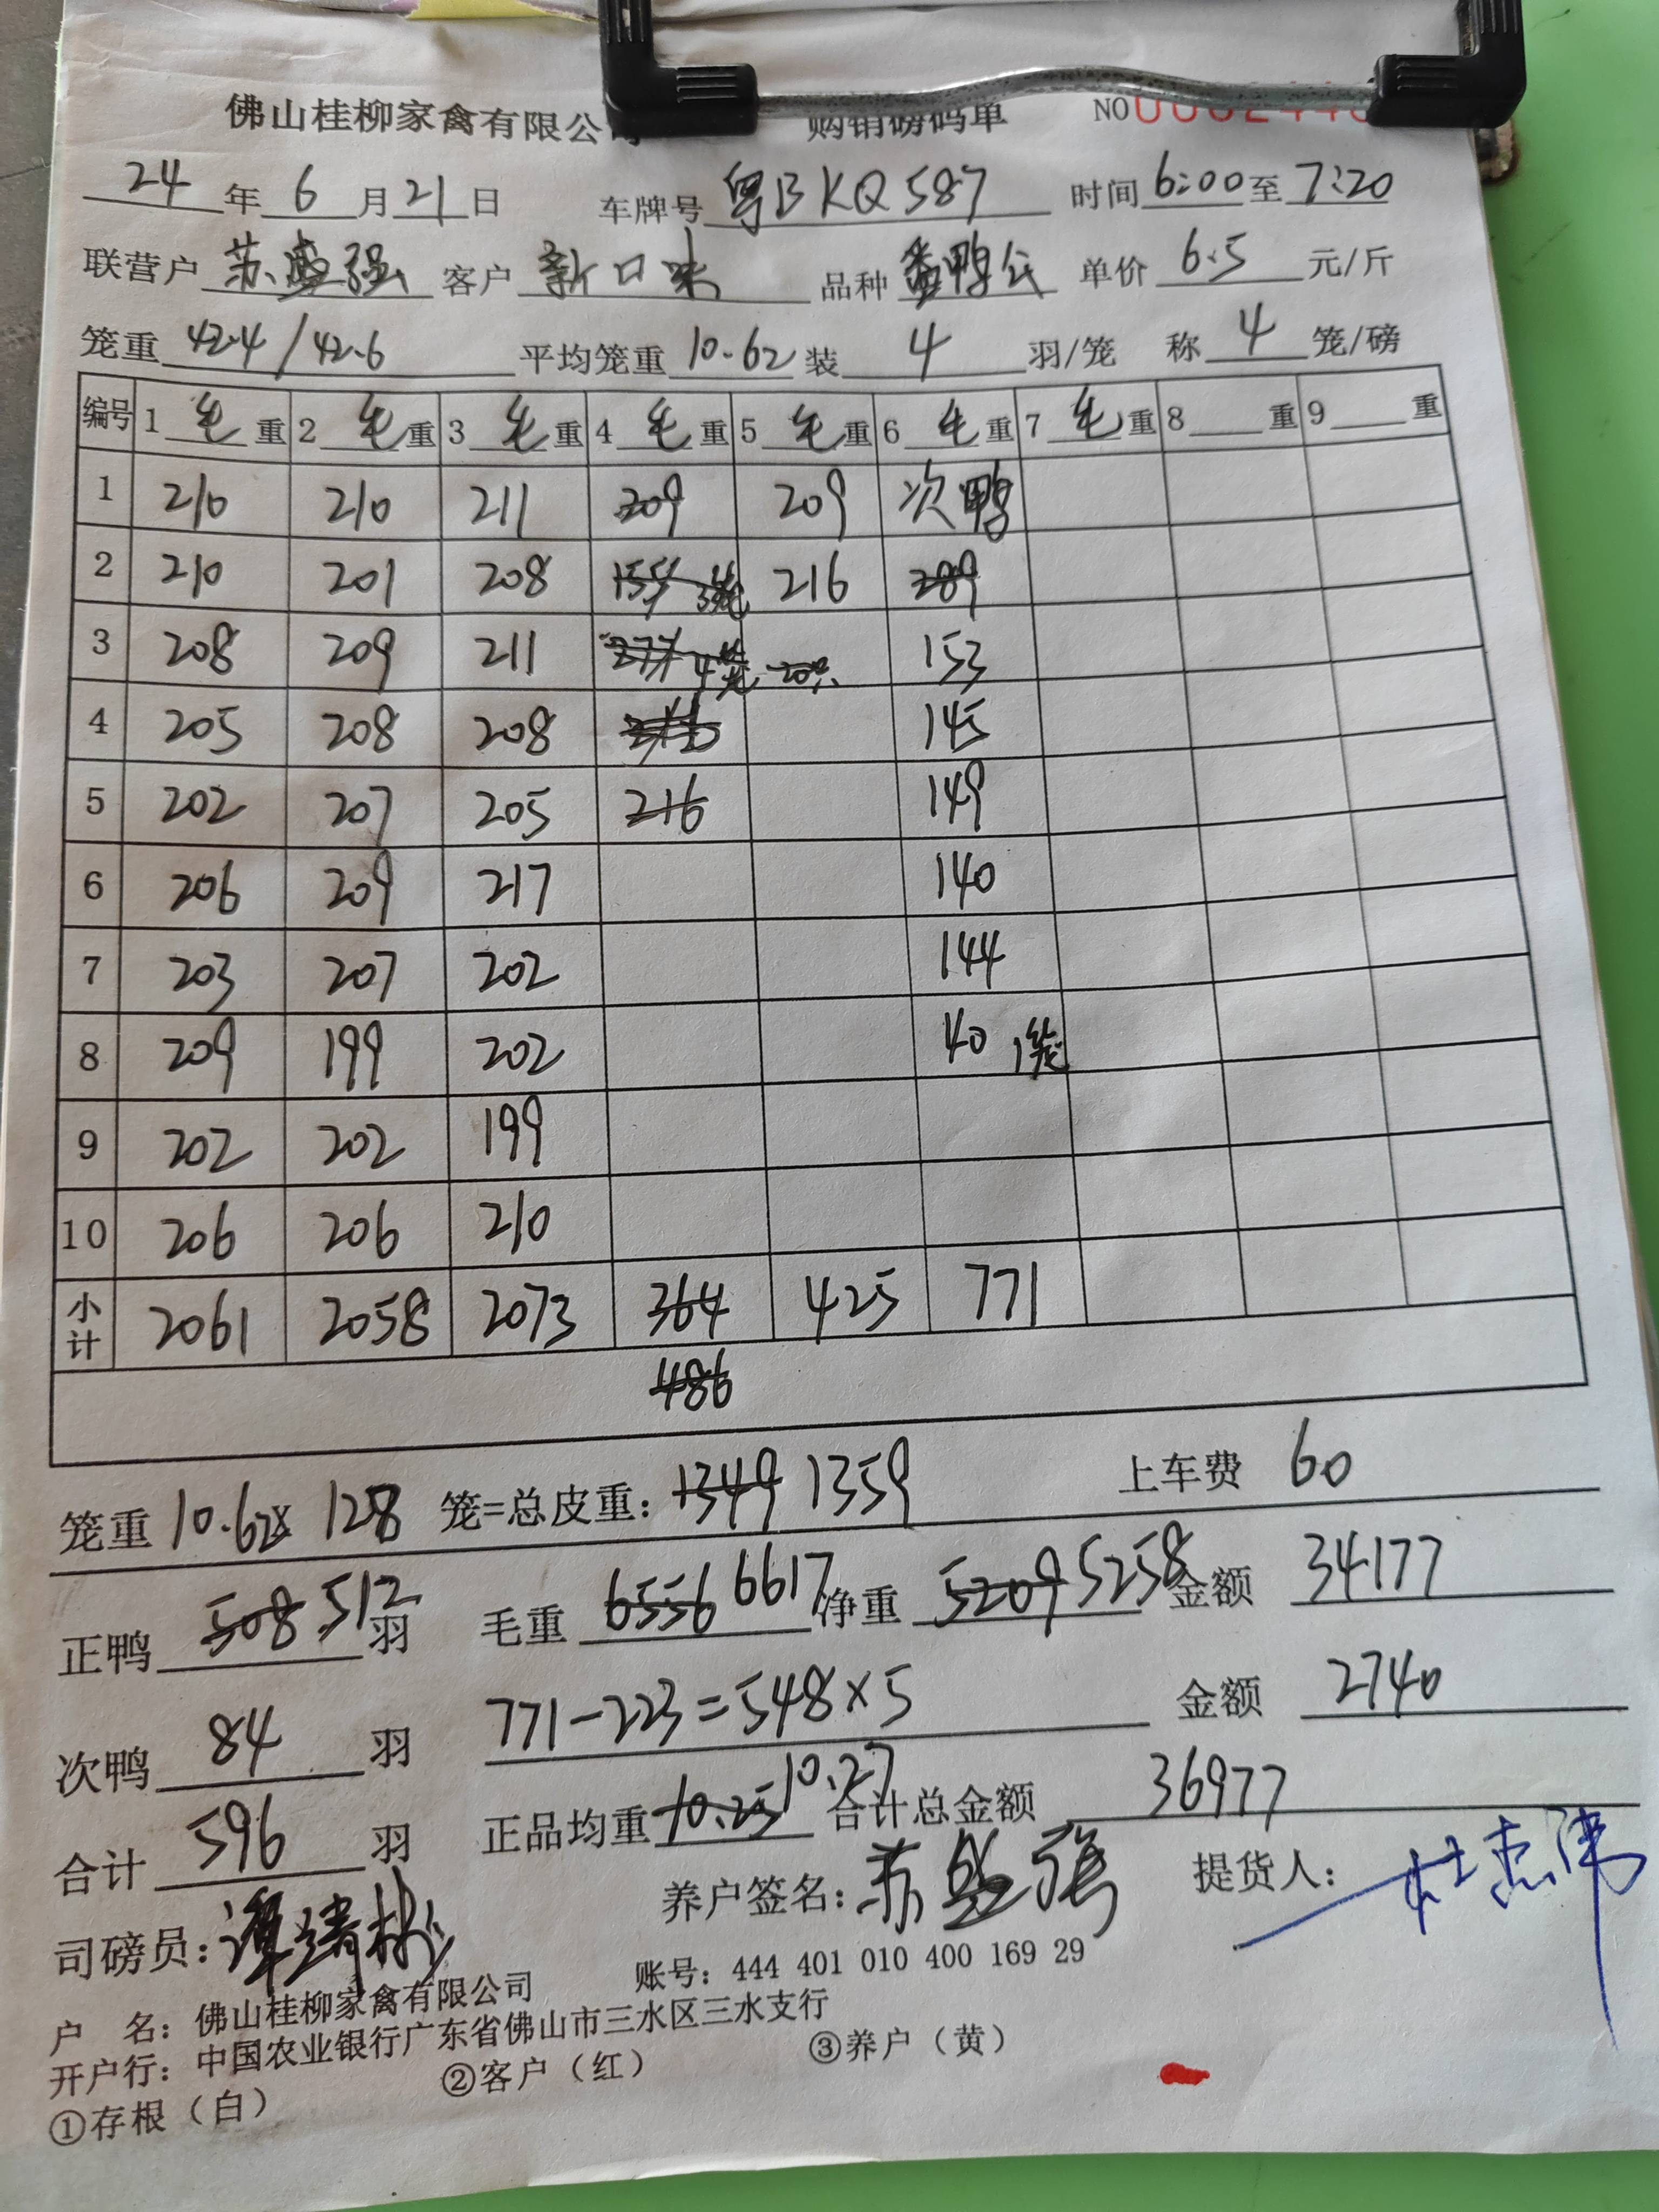 佛山桂柳家禽有限公司 购销磅码单 NO
24年6月21日 车牌号 粤BKQ587 时间 6:00至7:20
联营户 苏盛强 客户 新口味 品种 番鸭公 单价 6.5 元/斤
笼重 42.4/42.6 平均笼重 10.62 装 4 羽/笼 称 4 笼/磅
编号 1 毛重 2 毛重 3 毛重 4 毛重 5 毛重 6 毛重 7 毛重 8 重 9 重
1 210 210 211 209 209 次鸭
2 210 201 208 155 3笼 216 289
3 208 209 211 277 4笼 20只 153
4 205 208 208 145
5 202 207 205 216 149
6 206 209 217 140
7 203 207 202 144
8 209 199 202 40 1笼
9 202 202 199
10 206 206 210
小计 2061 2058 2073 364 425 771
486
笼重 10.62x 128 笼=总皮重: 1349 1359 上车费 60
正鸭 508 512 羽 毛重 6556 6617 净重 5209 5258 金额 34177
次鸭 84 羽 771-223=548×5 金额 2740
合计 596 羽 正品均重 10.25 10.27 合计总金额 36977
司磅员: 养户签名: 苏盛强 提货人: 杜志伟
户 名: 佛山桂柳家禽有限公司 账号: 444 401 010 400 169 29
开户行: 中国农业银行广东省佛山市三水区三水支行
①存根（白） ②客户（红） ③养户（黄）